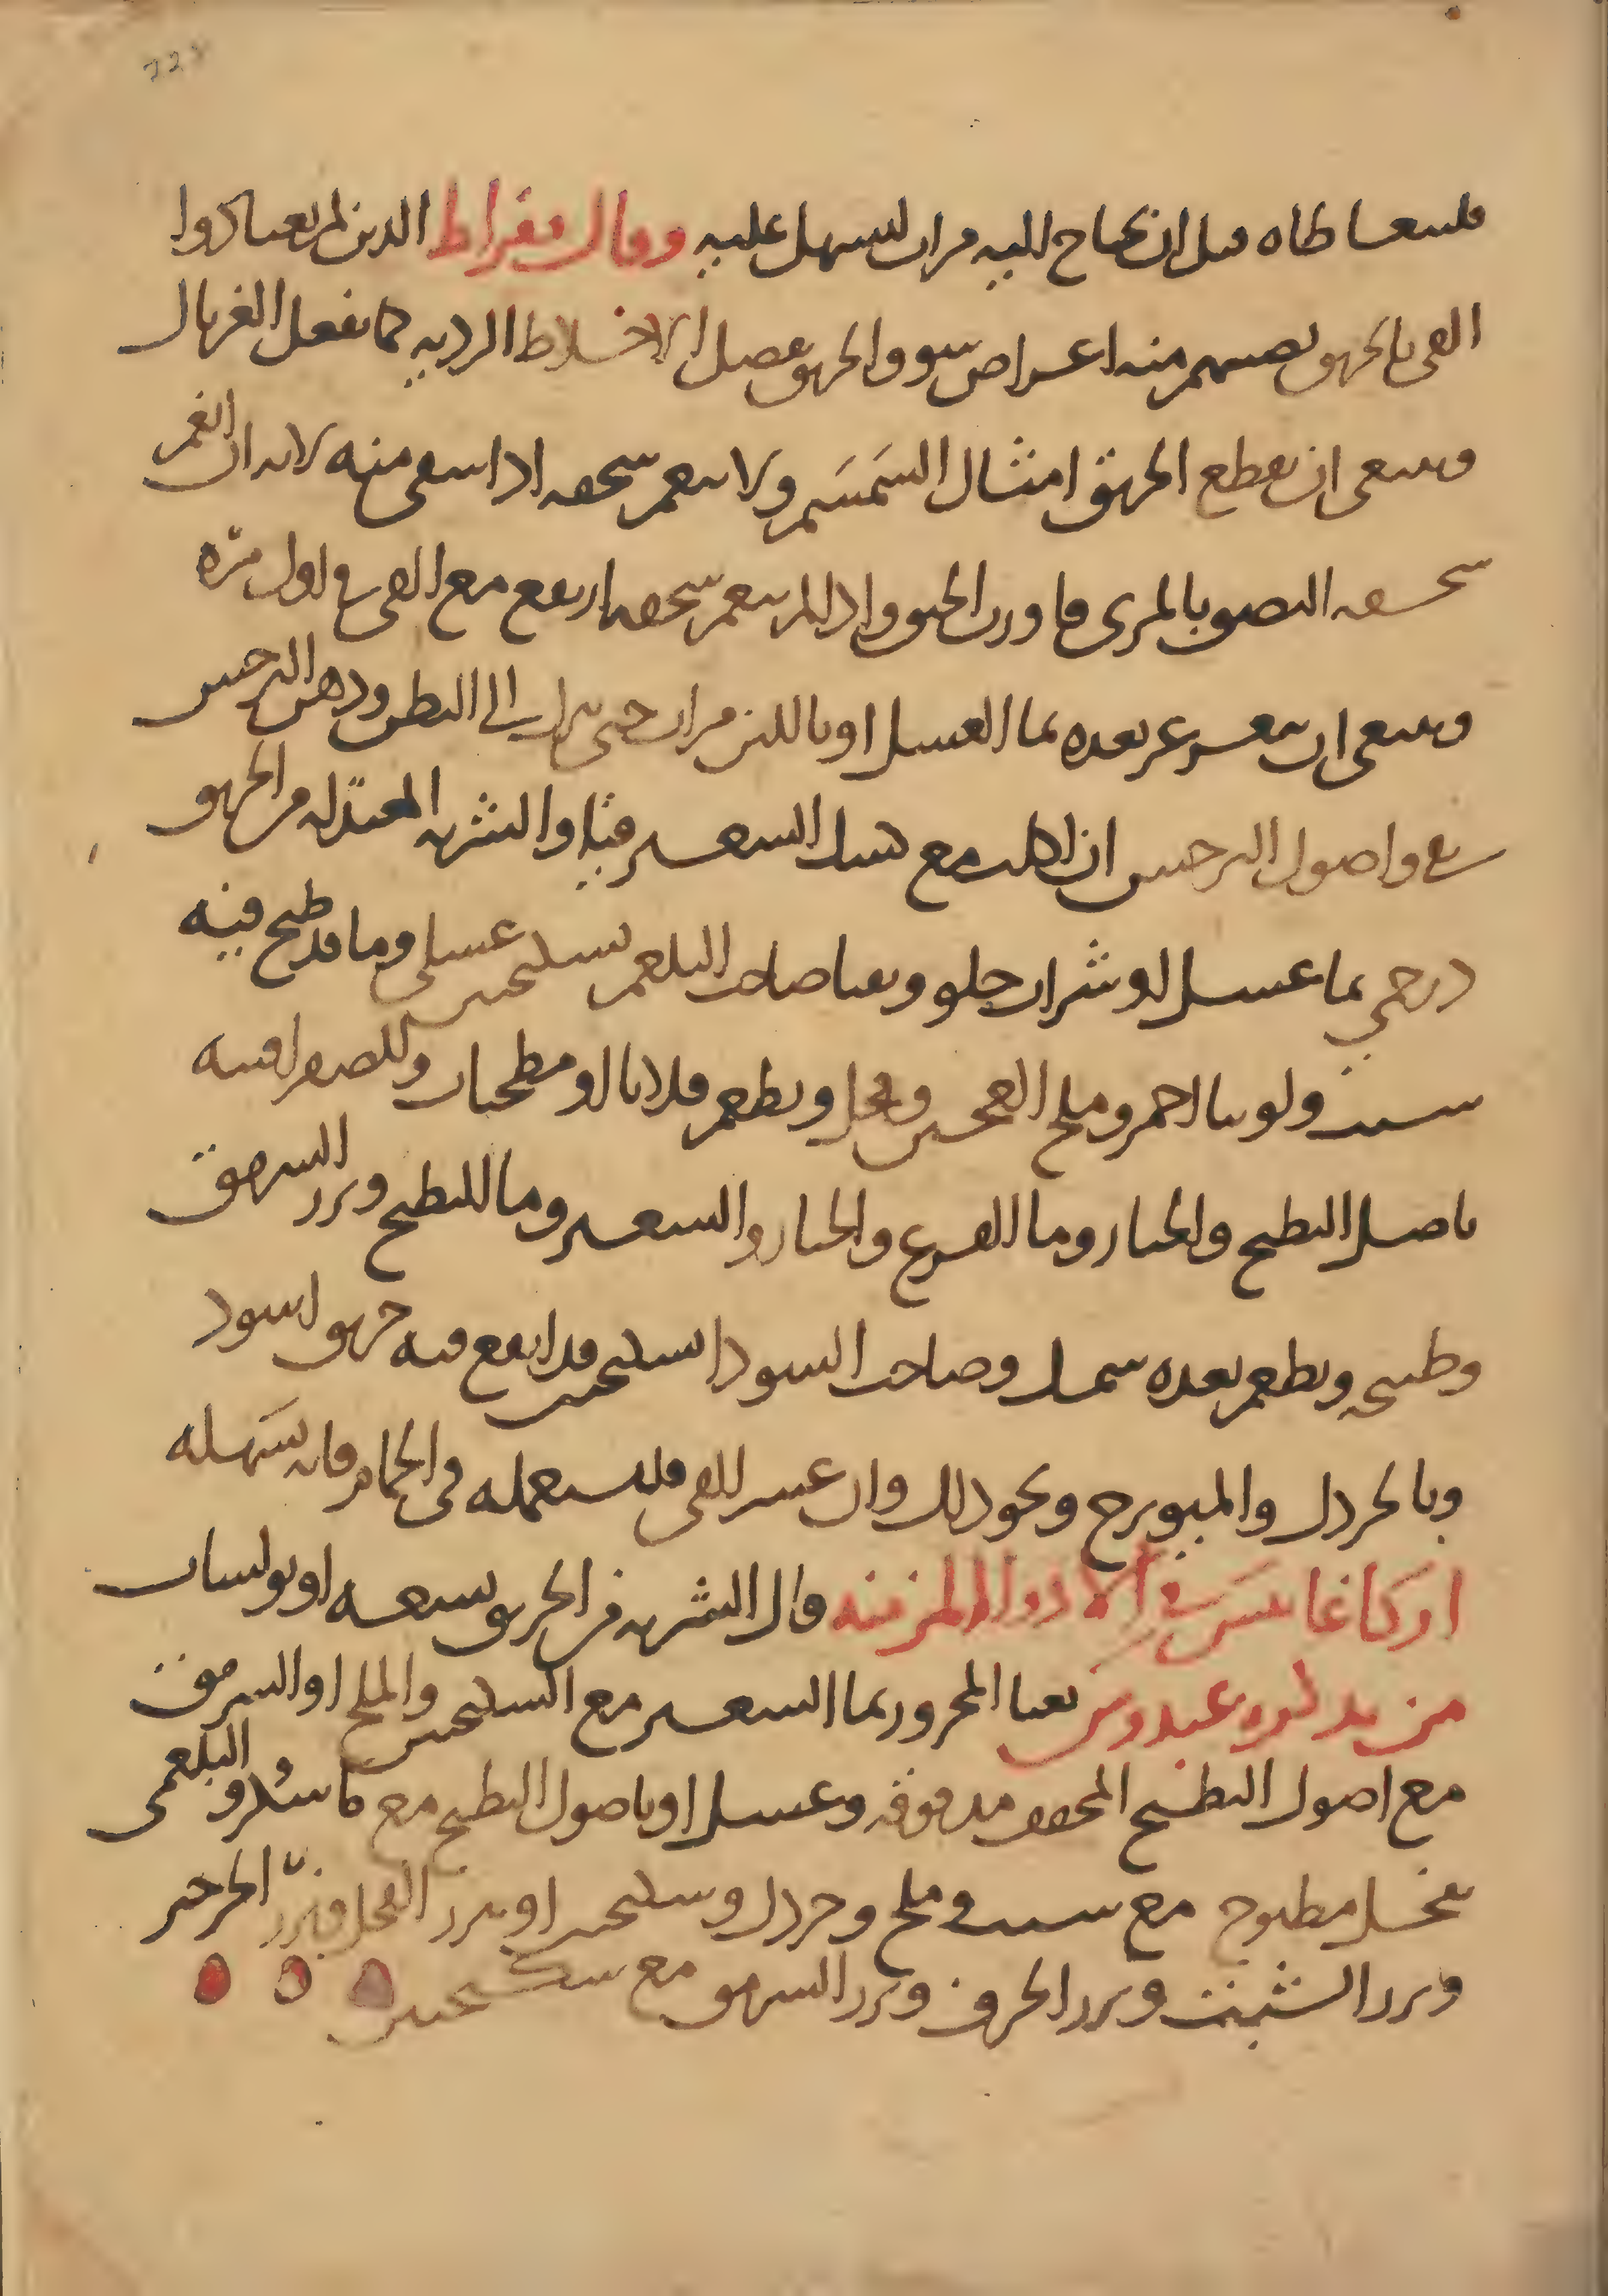 فليتعاطاه قبل ان يحتاج اليه مرات ليسهل عليه وقال بقراط الذين لم يعتادوا
القى بالخربق يصيبهم منه اعراض سوو والخربق يفصل الاخلاط الرديه كما يفعل الغربال
وينبغى ان يقطع الخربق امثال السمسم ولا ينعم سحقه اذا سقى منه لانه ان انعم
سحقه التصق بالمرى فاورث الخنق واذا لم ينعم سحقه ارتفع مع القى فى اول مره
وينبغى ان يتغرغر بعده بما العسل او باللبن مرات حتى ينزل الى البطن ودهن النرجس
يقى واصول النرجس ان اكلت مع كشك الشعير قيا والشربه المعتدله من الخربق
درخمى بما عسل او شراب حلو ويقيا صاحب البلغم بسكنجبين عسلى وما قد طبخ فيه
شبت ولوبيا احمر وملح العجين وفجل ويطعم قلايا او مطجنات وللصفرا قيه
باصل البطيخ والخيار وما القرع والخيار والشعير وما البطيخ وبزر السرمق
وطبيخه ويطعم بعده سمك وصاحب السودا بسكنجبين قد انقع فيه خربق اسود
وبالخردل والميويزج ونحو ذلك وان عسر القى فليستعمله فى الحمام فانه يسهله
اركاغانيس فى الادوا المزمنه قال الشربه من الخربق تسعه اوبولسات
من تذكره عبدوس يقيا المحرور بما الشعير مع السكنجبين والملح او السرمق
مع اصول البطيخ المجفف مدقوقه وعسل او باصول البطيخ مع ما سكر والبلغمى
بفجل مطبوخ مع شبت وملح وخردل وسكنجبين او ببزر الفجل وبزر الجرجير
وبزر الشبث وبزر الحرف وبزر السرمق مع سكنجبين